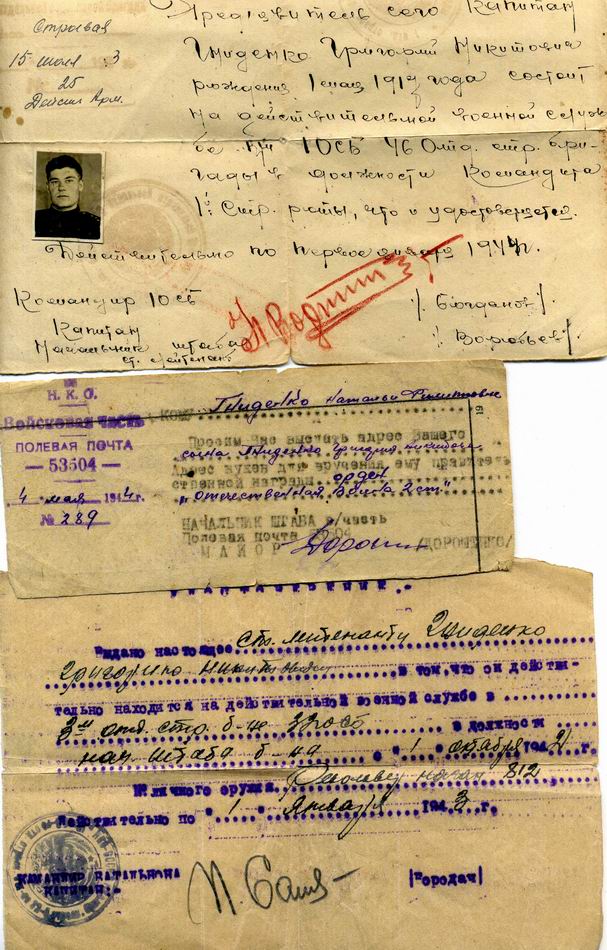 Строевая
15 июля 3
25
Действ. Арм.
Предъявитель сего Капитан
Гниденко Григорий Никитович
рождения 1 мая 1917 года состоит
на действительной военной служ-
бе в/ч 1 ОСБ 46 Отд. стр. бри-
гады в должности Командира
1й Стр. роты, что и удостоверяется.
Действительно по первое января 1944 г.
Командир 1 ОСБ
Капитан / Богданов /.
Начальник штаба
ст. лейтенант / Воробьев /.
Н.К.О.
Войсковая часть
ПОЛЕВАЯ ПОЧТА
— 53504 —
4 мая 1944 г.
№ 289
КОМУ Гниденко Наталье Филипповне
19
Просим Вас выслать адрес Вашего
сына Гниденко Григория Никитовича
Адрес нужен для вручения ему правитель
ственной награды орден
"Отечественная Война 2 ст"
НАЧАЛЬНИК ШТАБА в/часть
Полевая почта 53504
МАЙОР /ДОРОШЕНКО/
Выдано настоящее ст. лейтенанту Гниденко
Григорию Никитовичу в том, что он действи-
тельно находится на действительной военной службе в
3м отд. стр. б-не 33 осб в должности
нач. штаба б-на с " 1 " октября 1942 г.
№ личного оружия Револьвер наган 812
Действительно по " 1 " Января 1943 г.
КОМАНДИР БАТАЛЬОНА
КАПИТАН:- |Бородач|